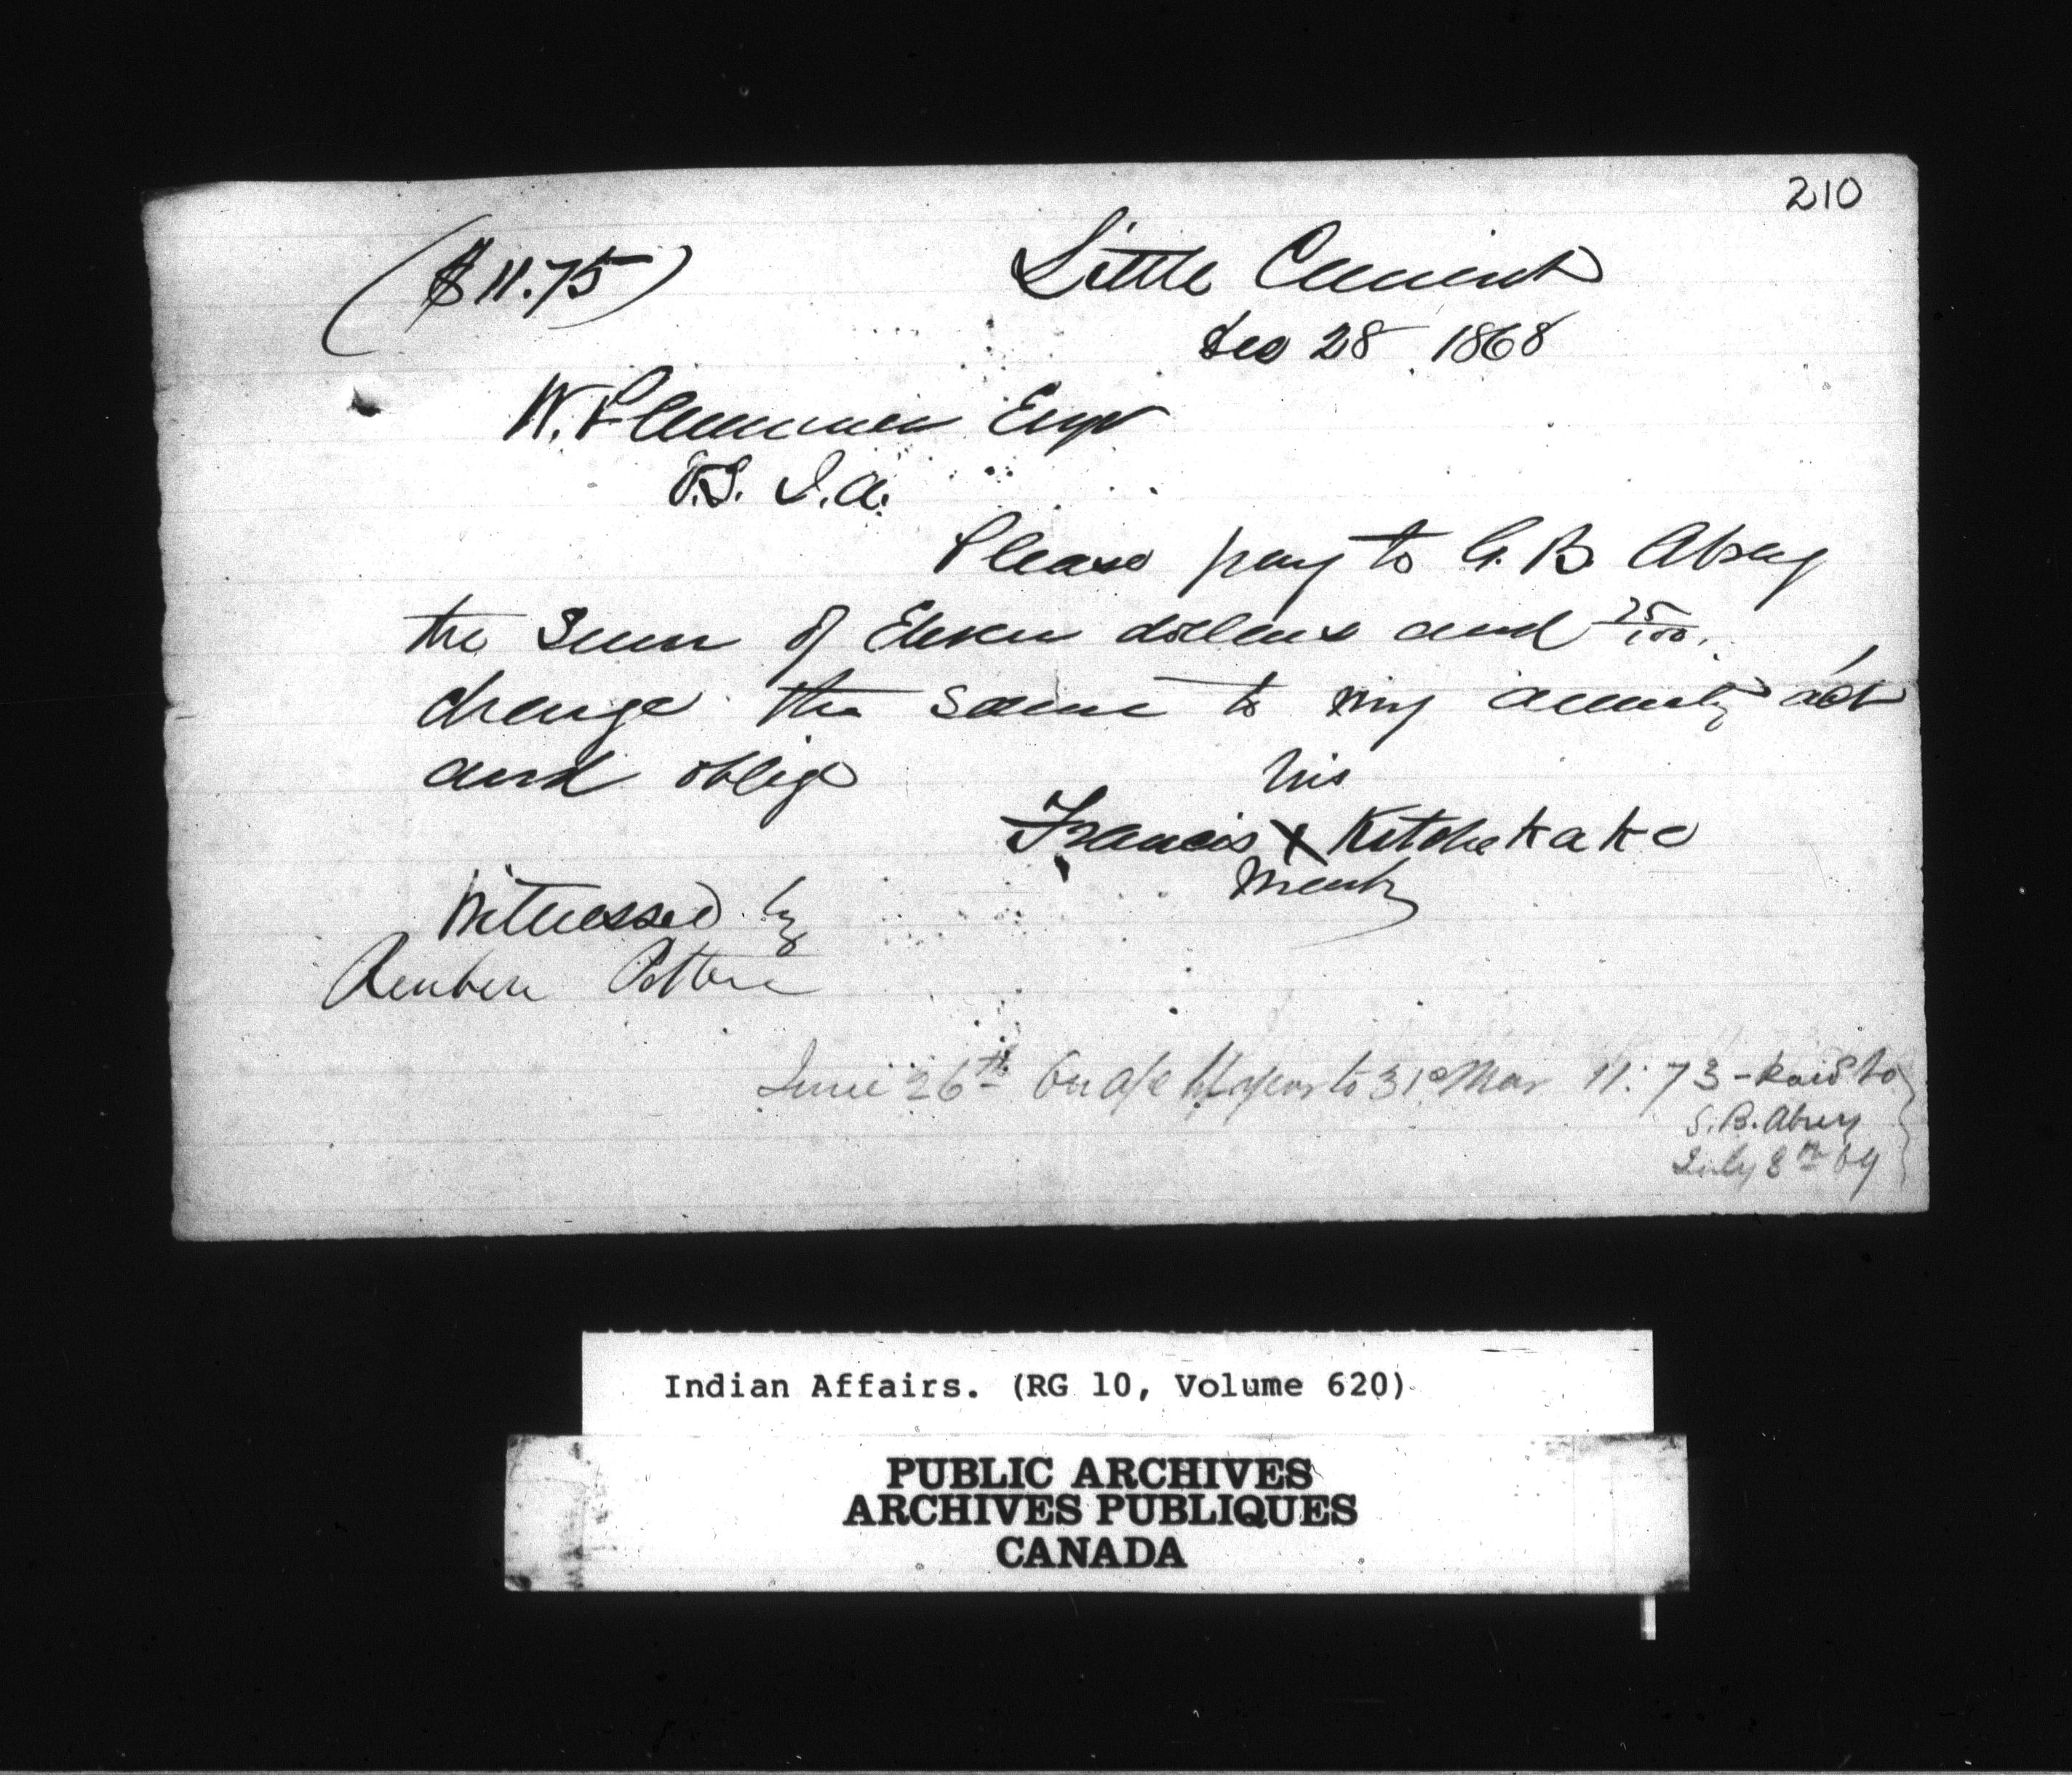 210
($11.75)
Little Current
Dec 28 1868
W. Plummer Esqr
V.S. I.A.
Please pay to G. B. Abrey
the sum of Eleven dollars and 75/100.
charge the same to my annuity act
and oblige
his
Francis X Kitchekake
Mark
Witnessed by
Reuben
June 26th On a/c to 31st Mar 11.73 - paid to
G. B. Abrey
July 8th 69
Indian Affairs. (RG 10, Volume 620)
PUBLIC ARCHIVES
ARCHIVES PUBLIQUES
CANADA